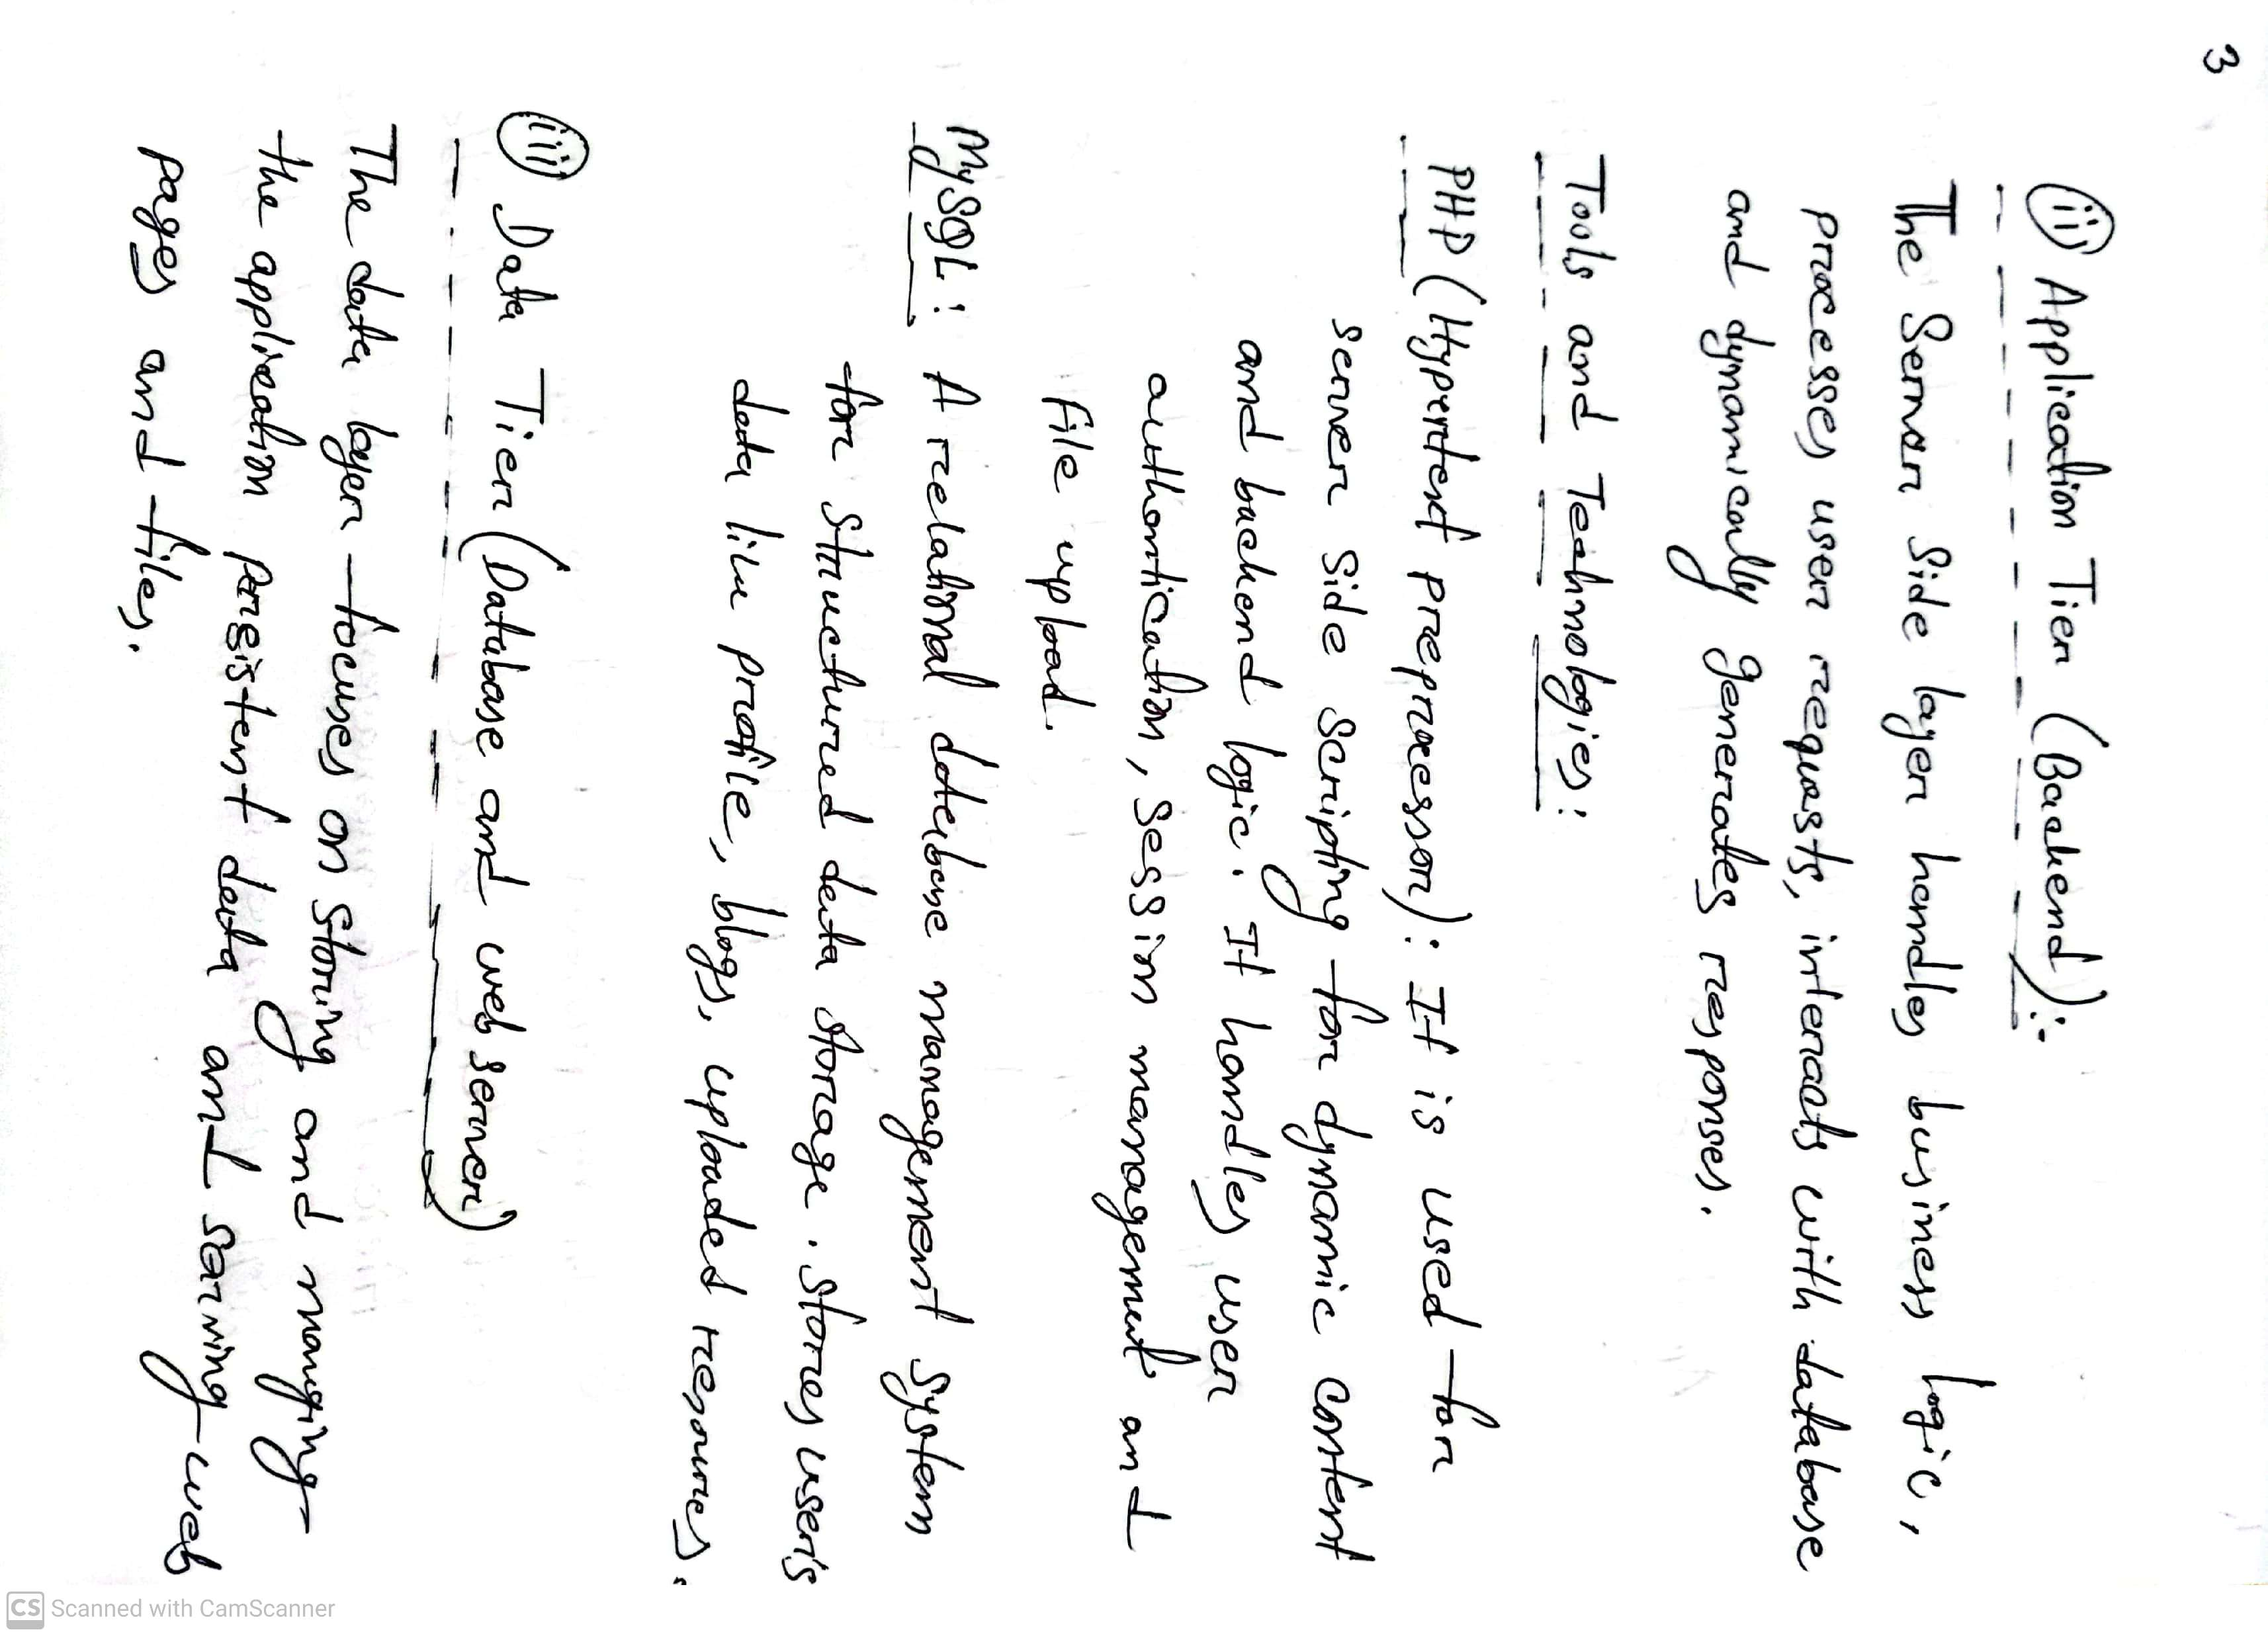 3
(ii) Application Tier (Backend):-
The Server Side layer handles business logic,
processes user requests, interacts with database
and dynamically generates responses.
Tools and Technologies:
PHP (Hypertext preprocessor): It is used for
server side scripting for dynamic content
and backend logic. It handles user
authentication, session management and
file upload.
MySQL: A relational database management system
for structured data storage. Stores user's
data like profile, blogs, uploaded resources.
(iii) Data Tier (Database and web server)
The data layer focuses on storing and manging
the application presistent data and serving web
pages and files.
CS Scanned with CamScanner